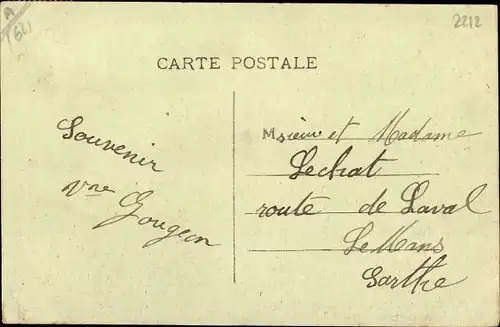 2212
CARTE POSTALE
Souvenir
Vve Gougeon
Msieur et Madame
Lechat
route de Laval
Le Mans
Sarthe